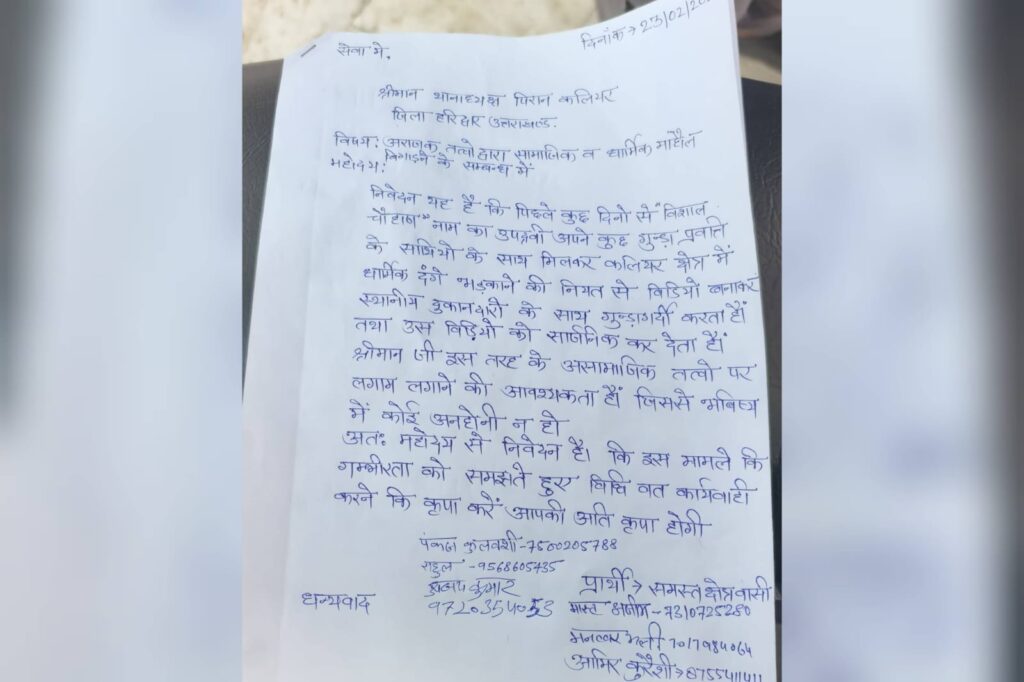 दिनांक → 23/02/20
सेवा मे,
श्रीमान थानाध्यक्ष पिरान कलियर
जिला हरिद्वार उत्तराखण्ड.
विषय: अराजक तत्वो द्वारा सामाजिक व धार्मिक माहौल
बिगाडने के सम्बन्ध में
महोदय:
निवेदन यह है कि पिछले कुछ दिनो से "विशाल
चौहाण" नाम का उपद्रवी अपने कुछ गुन्डा प्रवति
के साथियो के साथ मिलकर कलियर क्षेत्र में
धार्मिक दंगे भड़काने की नियत से विडियो बनाकर
स्थानीय दुकानदारो के साथ गुन्डागर्यी करता हैं।
तथा उस विडियो को सार्जनिक कर देता हैं।
श्रीमान जी इस तरह के असामाजिक तत्वो पर
लगाम लगाने की आवश्यकता हैं। जिससे भबिष्य
में कोई अनहोनी न हो
अतः महोदय से निवेदन है। कि इस मामले कि
गम्भीरता को समझते हुए विधि वत कार्यवाही
करने कि कृपा करें आपकी अति कृपा होगी
पंकज कुलवंशी-7500205788
राहुल -9568605735
कुमार
9720354053
धन्यवाद
प्रार्थी → समस्त क्षेत्रवासी
-7310725280
अली 7017984064
आमिर कुरैशी →